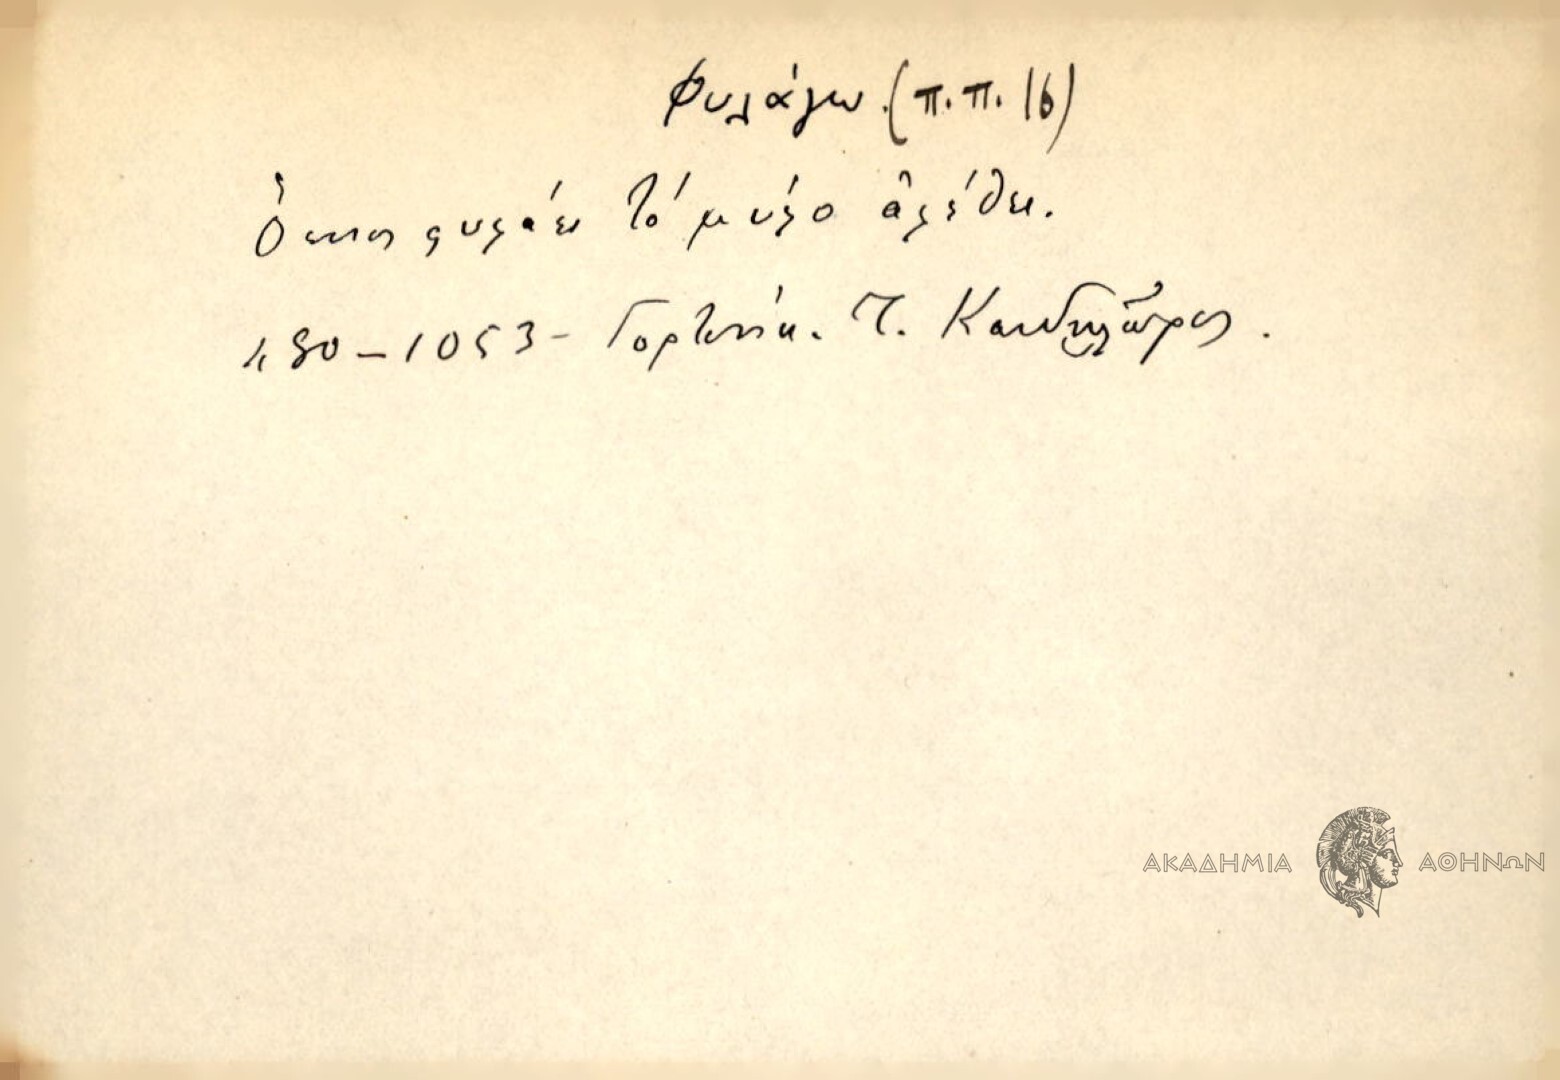 Φυλάγω (Π.Π. 16)
Ὅποιος φυλάει τό μύλο ἀλέθει.
480-1053- Γορτυνία. Τ. Κανδηλῶρος.
ΑΚΑΔΗΜΙΑ ΑΘΗΝΩΝ